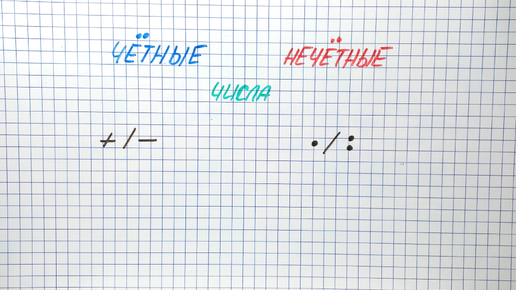 ЧЁТНЫЕ НЕЧЁТНЫЕ
ЧИСЛА
+ / − • / :